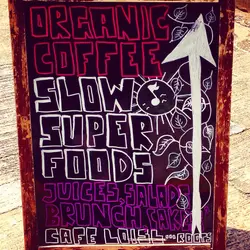 ORGANIC
COFFEE
SLOW
SUPER
FOODS
JUICES, SALADS
BRUNCH
CAFE LOISL ROOTS